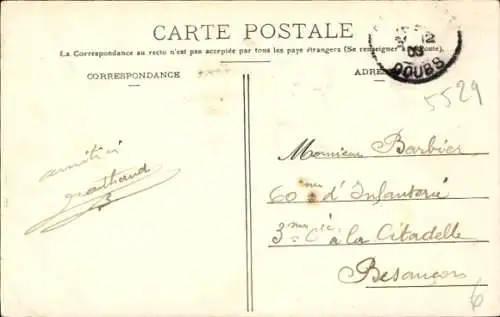 CARTE POSTALE
La Correspondance au recto n'est pas acceptée par tous les pays étrangers (Se renseigner à la Poste).
CORRESPONDANCE
ADRE
12
09
DOUBS
5529
Monsieur Barbier
60me d'Infanterie
3me Cie à la Citadelle
Besançon
amitiés
6